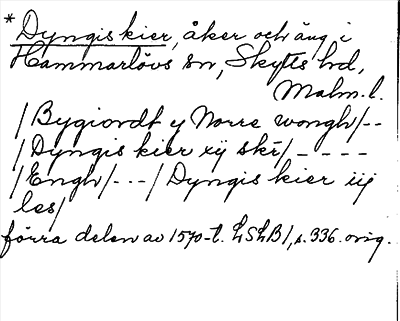 *Dyngis kier, åker och äng i
Hammarlövs sn, Skytts hd,
Malm. l.
/Bygiordt y Norre wongh/--
/Dyngis kier xij skr̄/ - - - -
/Engh/---/Dyngis kier iij
les/
förra delen av 1570-t. LSLB1, s. 336. orig.